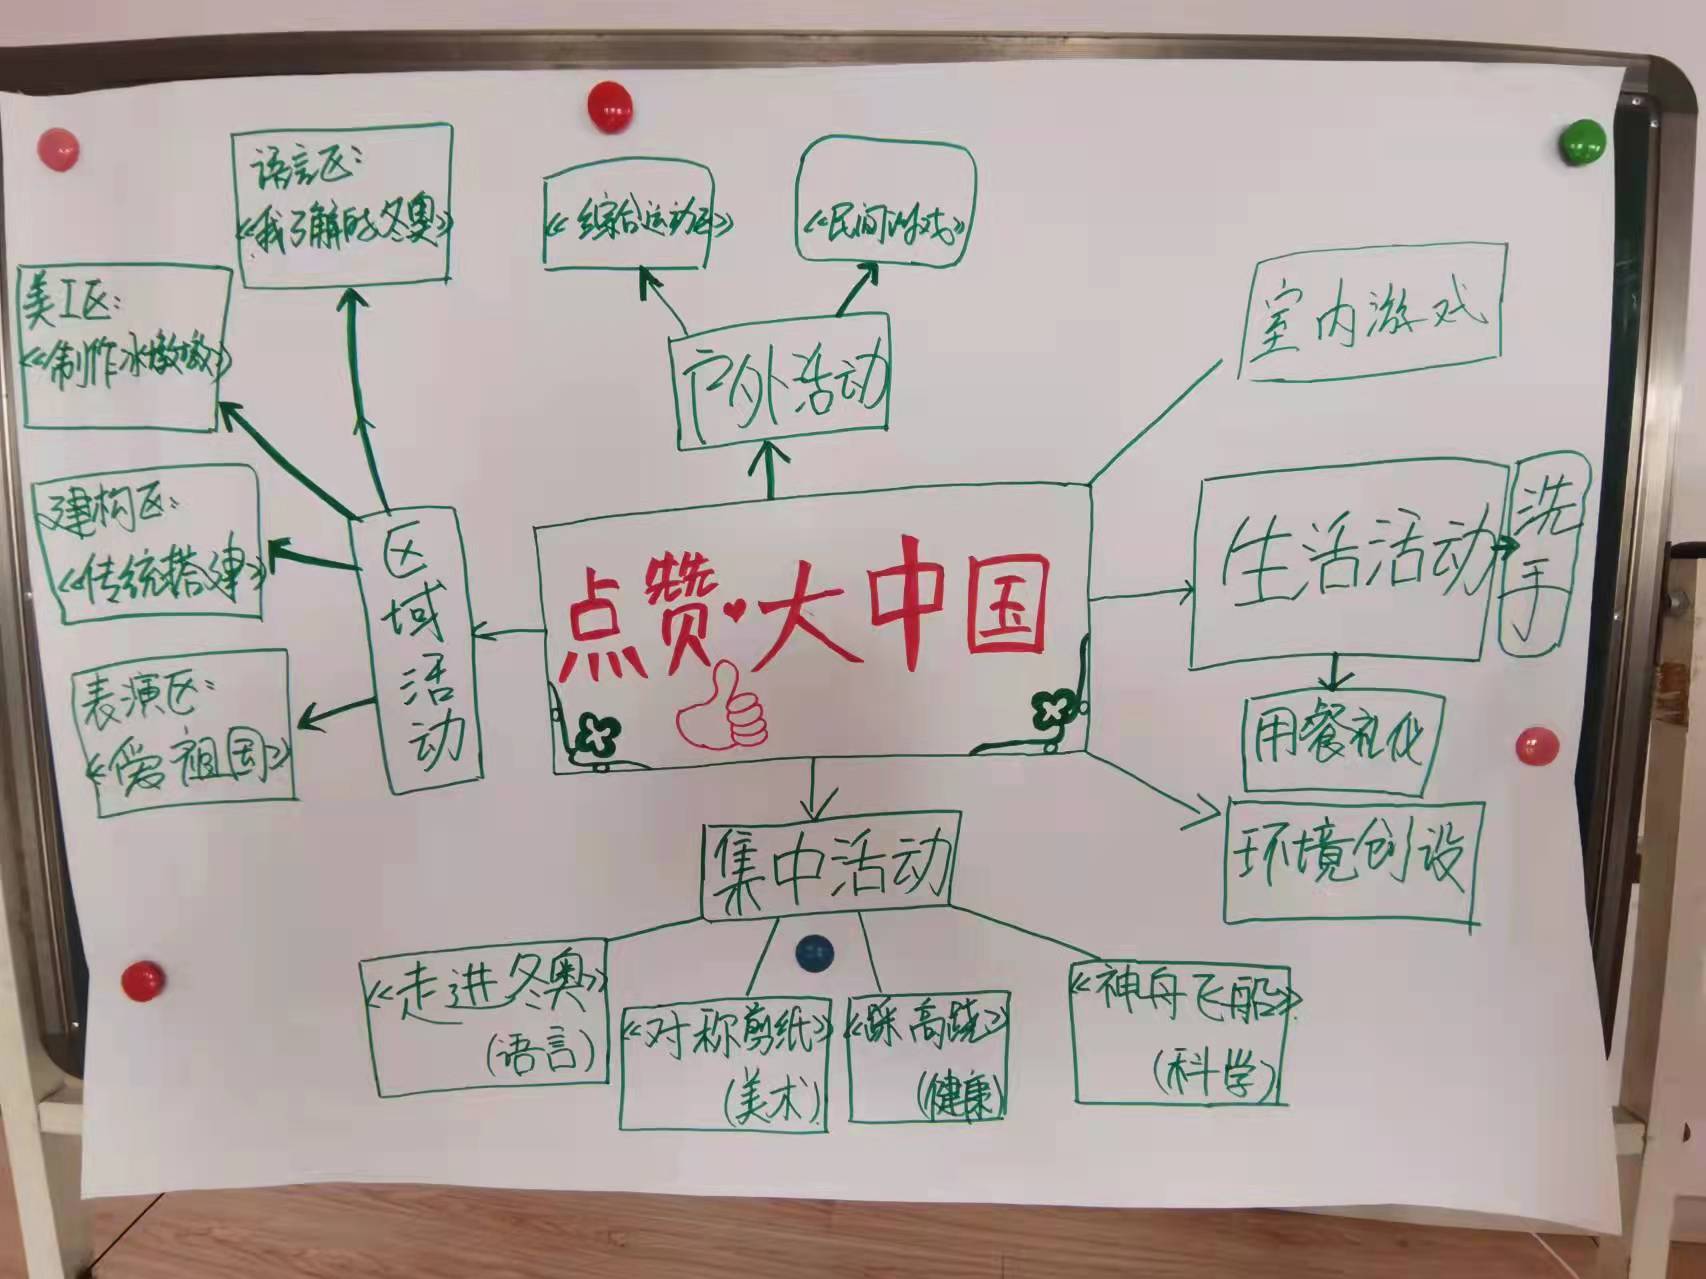 语言区：
《我了解的冬奥》
《综合运动区》
《民间游戏》
美工区：
《制作冰墩墩》
室内游戏
户外活动
建构区：
《传统搭建》
区域活动
点赞大中国
生活活动
洗手
表演区：
《爱祖国》
用餐礼仪
环境创设
集中活动
《走进冬奥》
（语言）
《对称剪纸》
（美术）
《踩高跷》
（健康）
《神舟飞船》
（科学）